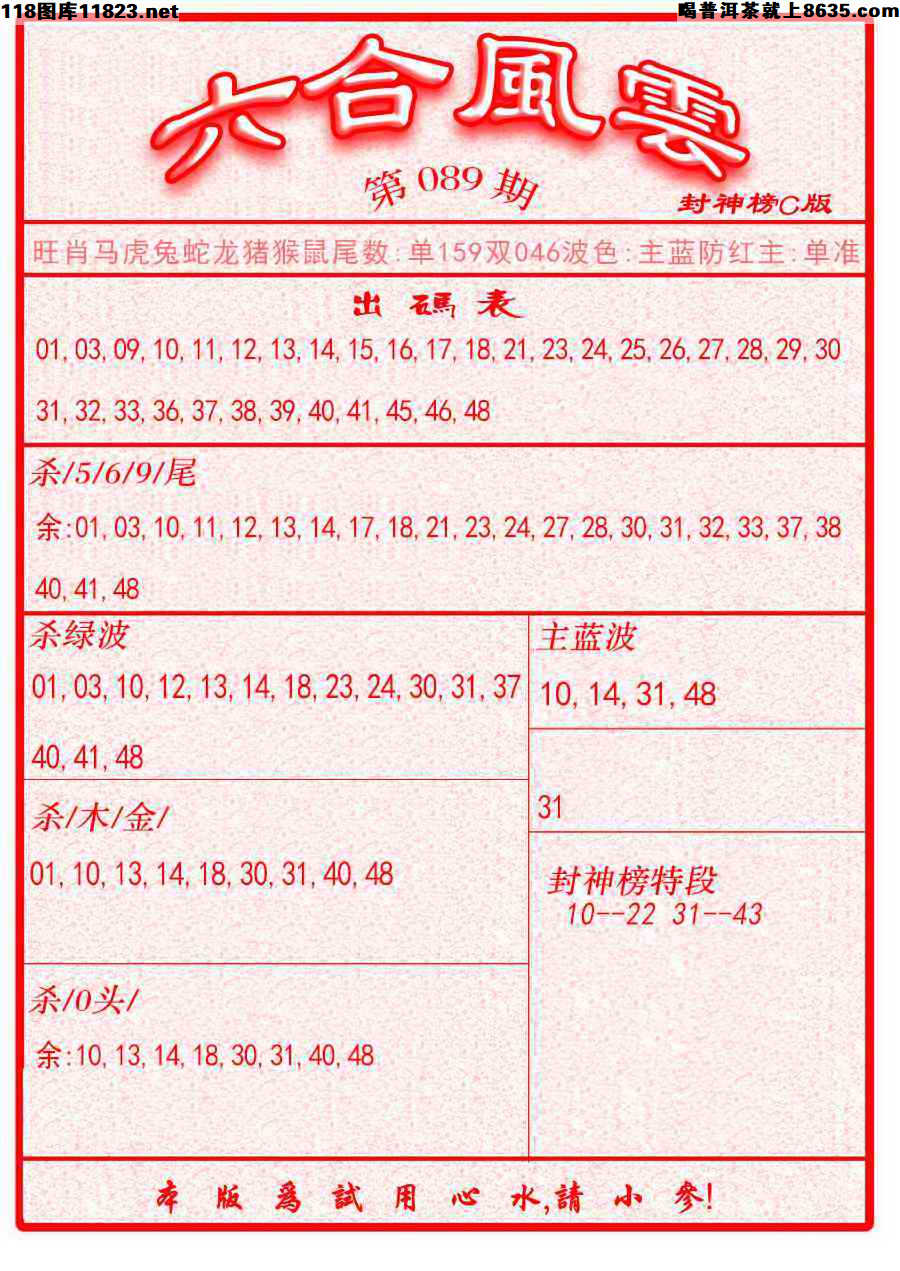 118图库11823.net
喝普洱茶就上8635.com
六合風雲
第089期
封神榜C版
旺肖马虎兔蛇龙猪猴鼠尾数:单159双046波色:主蓝防红主:单准
出碼表
01,03,09,10,11,12,13,14,15,16,17,18,21,23,24,25,26,27,28,29,30
31,32,33,36,37,38,39,40,41,45,46,48
杀/5/6/9/尾
余:01,03,10,11,12,13,14,17,18,21,23,24,27,28,30,31,32,33,37,38
40,41,48
杀绿波
01,03,10,12,13,14,18,23,24,30,31,37
40,41,48
主蓝波
10,14,31,48
31
杀/木/金/
01,10,13,14,18,30,31,40,48
封神榜特段
10--22 31--43
杀/0头/
余:10,13,14,18,30,31,40,48
本版爲試用心水,請小參!